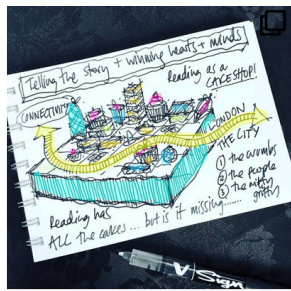 Telling the story + winning hearts + minds
Reading as a
CAKESHOP!
CONNECTIVITY
LONDON
THE CITY
① the crumbs
② the people
③ the nitty
gritty
Reading has
ALL the cakes ... but is it missing.......
V Sign